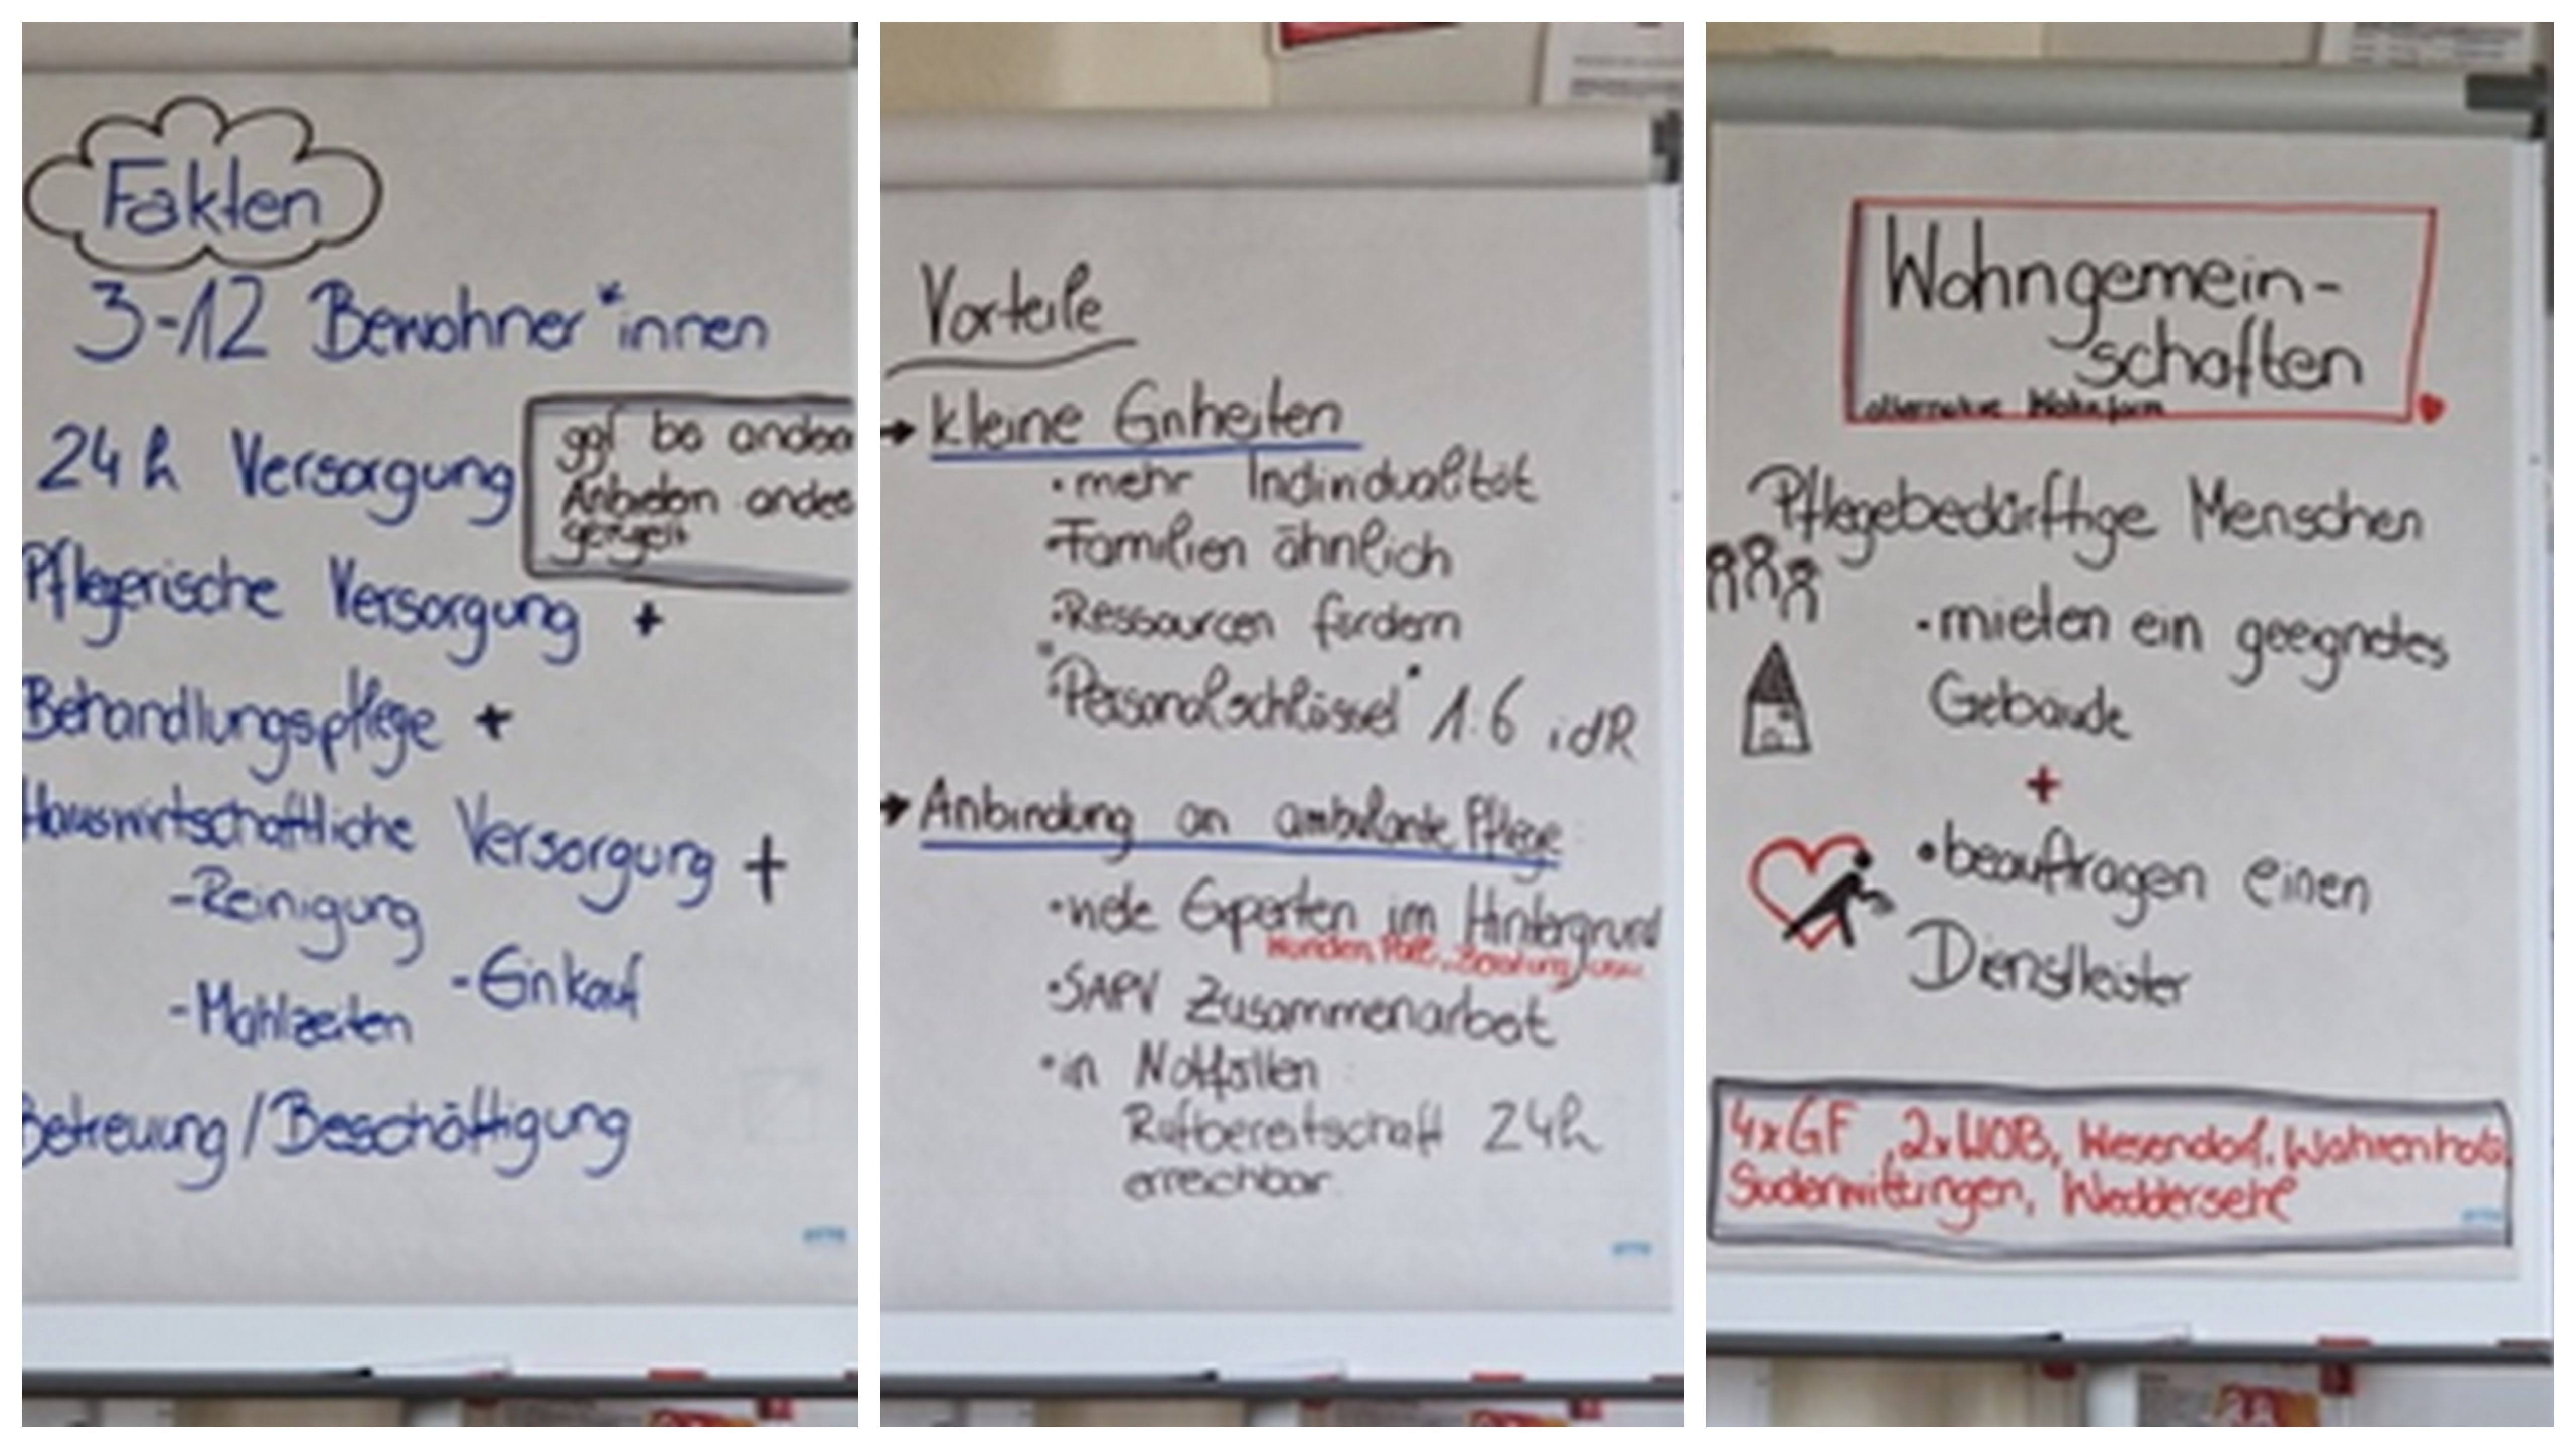 Fakten
3-12 Bewohner*innen
24h Versorgung
ggf bei
Anbietern
geregelt
Pflegerische Versorgung +
Behandlungspflege +
Hauswirtschaftliche Versorgung +
-Reinigung
-Einkauf
-Mahlzeiten
Betreuung/Beschäftigung
Vorteile
→ kleine Einheiten
• mehr Individualität
• Familien ähnlich
• Ressourcen fördern
• "Personalschlüssel" 1:6 idR
→ Anbindung an ambulante Pflege:
• viele Experten im Hintergrund
Wunden, Pall., Beratung, usw.
• SAPV Zusammenarbeit
• in Notfällen
Rufbereitschaft 24h
erreichbar.
Wohngemein-
schaften
alternative Wohnform
Pflegebedürftige Menschen
• mieten ein geeignetes
Gebäude
+
• beauftragen einen
Dienstleister
4xGF, 2xWOB, Wesendorf, Wahrenholz,
Suderwittingen, Weddersehl